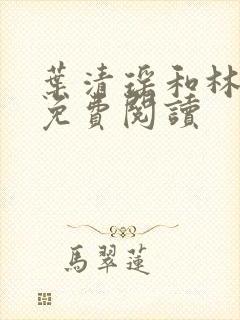 葉清瑤和林
免費閱讀
馬翠蓮